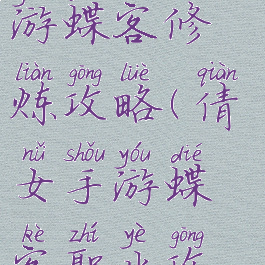 游蝶客修
liàn gōng lüè qiàn
炼攻略(倩
nǚ shǒu yóu dié
女手游蝶
kè zhí yè gōng
客职业攻